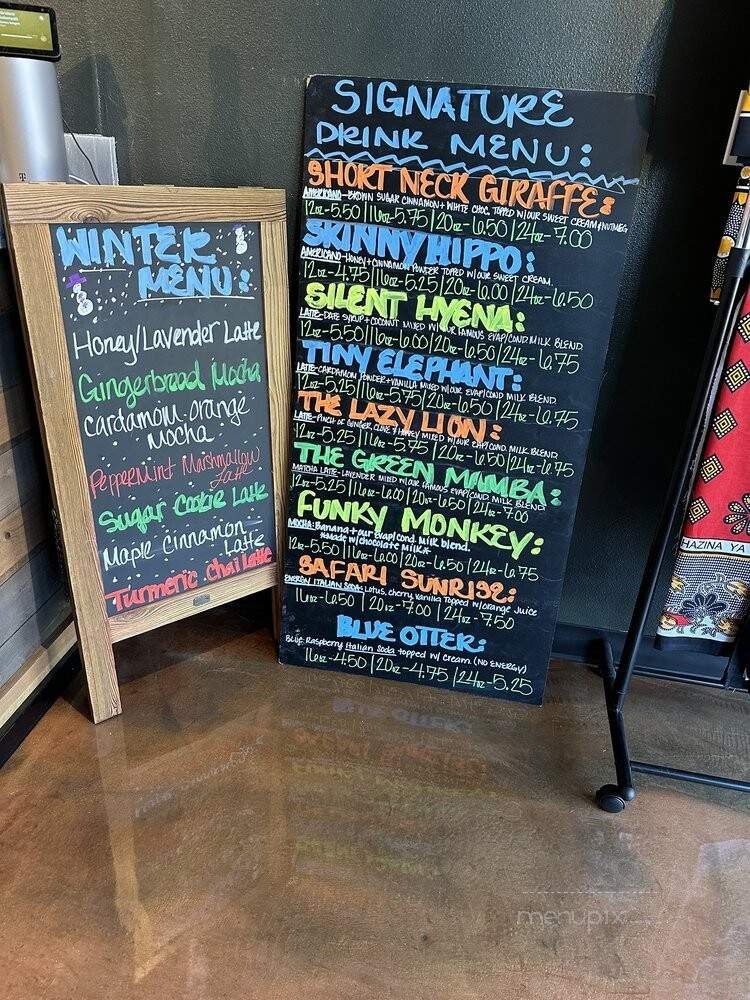 WINTER
MENU:
Honey/Lavender Latte
Gingerbread Mocha
Cardamom-Orange
Mocha
Peppermint Marshmallow
Latte
Sugar Cookie Latte
Maple Cinnamon
Latte
Turmeric Chai Latte
SIGNATURE
DRINK MENU:
SHORT NECK GIRAFFE:
AMERICANO-BROWN SUGAR CINNAMON + WHITE CHOC. TOPPED W/OUR SWEET CREAM + NUTMEG
12oz-5.50|16oz-5.75|20oz-6.50|24oz-7.00
SKINNY HIPPO:
AMERICANO-HONEY+CINNAMON POWDER TOPPED W/OUR SWEET CREAM.
12oz-4.75|16oz-5.25|20oz-6.00|24oz-6.50
SILENT HYENA:
LATTE-DATE SYRUP+COCONUT MIXED W/OUR FAMOUS EVAP/COND. MILK BLEND.
12oz-5.50|16oz-6.00|20oz-6.50|24oz-6.75
TINY ELEPHANT:
LATTE-CARDAMOM POWDER+VANILLA MIXED W/OUR EVAP/COND MILK BLEND.
12oz-5.25|16oz-5.75|20oz-6.50|24oz-6.75
THE LAZY LION:
LATTE-PINCH OF GINGER, CLOVE & HONEY MIXED W/OUR EVAP/COND. MILK BLEND
12oz-5.25|16oz-5.75|20oz-6.50|24oz-6.75
THE GREEN MAMBA:
MATCHA LATTE-LAVENDER MIXED W/OUR FAMOUS EVAP/COND MILK BLEND
12oz-5.25|16oz-6.00|20oz-6.50|24oz-7.00
FUNKY MONKEY:
MOCHA: Banana+our evap/cond. Milk blend.
*Made w/chocolate milk*
12oz-5.50|16oz-6.00|20oz-6.50|24oz-6.75
SAFARI SUNRISE:
ENERGY ITALIAN SODA: Lotus, cherry, vanilla topped w/orange juice
16oz-6.50|20oz-7.00|24oz-7.50
BLUE OTTER:
Blue Raspberry Italian Soda topped w/ cream (NO ENERGY)
16oz-4.50|20oz-4.75|24oz-5.25
HAZINA YA
menupix